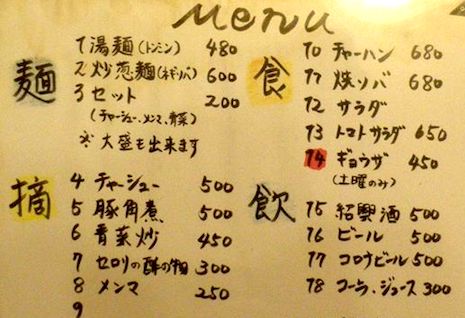 Menu
麺
1 湯麺(トンミン) 480
2 炒葱麺(ネギソバ) 600
3 セット 200
(チャーシュー、メンマ、青菜)
※ 大盛も出来ます
摘
4 チャーシュー 500
5 豚角煮 500
6 青菜炒 450
7 セロリの酢の物 300
8 メンマ 250
9
食
10 チャーハン 680
11 焼ソバ 680
12 サラダ
13 トマトサラダ 650
14 ギョウザ 450
(土曜のみ)
飲
15 紹興酒 500
16 ビール 500
17 コロナビール 500
18 コーラ、ジュース 300